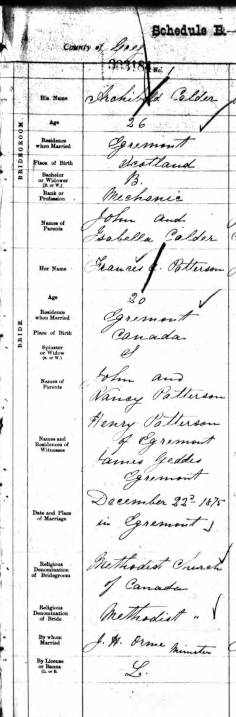 Schedule B.—
County of Grey
333184 No. 1
BRIDEGROOM
His Name Archibald Calder
Age 26
Residence when Married Egremont
Place of Birth Scotland
Bachelor or Widower (B. or W.) B.
Rank or Profession Mechanic
Names of Parents John and
Isabella Calder
BRIDE
Her Name Frances Patterson
Age 20
Residence when Married Egremont
Place of Birth Canada
Spinster or Widow (S. or W.) S
Names of Parents John and
Nancy Patterson
Names and Residences of Witnesses Henry Patterson
of Egremont
James Geddes
Egremont
Date and Place of Marriage December 22d 1875
in Egremont
Religious Denomination of Bridegroom Methodist Church
of Canada
Religious Denomination of Bride Methodist "
By whom Married J. H. Orme Minister
By License or Banns (L. or B. L.